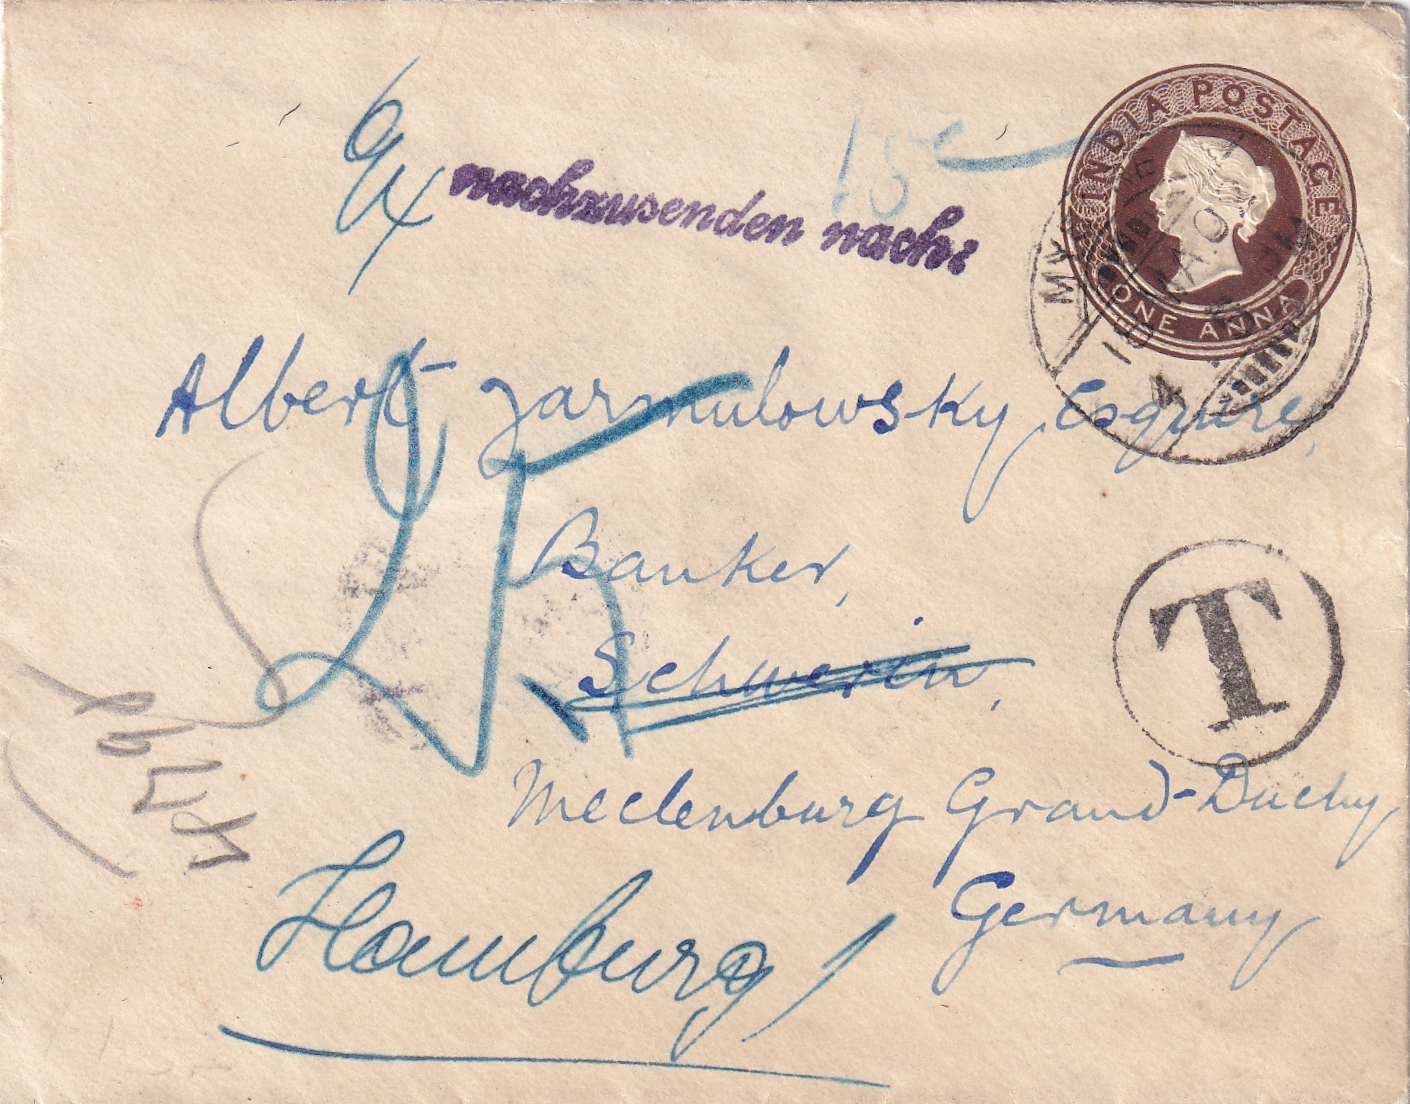 INDIA POSTAGE
ONE ANNA
15c
nachzusenden nach:
Albert Jarmulowsky Esquire,
25
Banker,
Schwerin,
T
Meclenburg Grand-Duchy
Germany
Hamburg